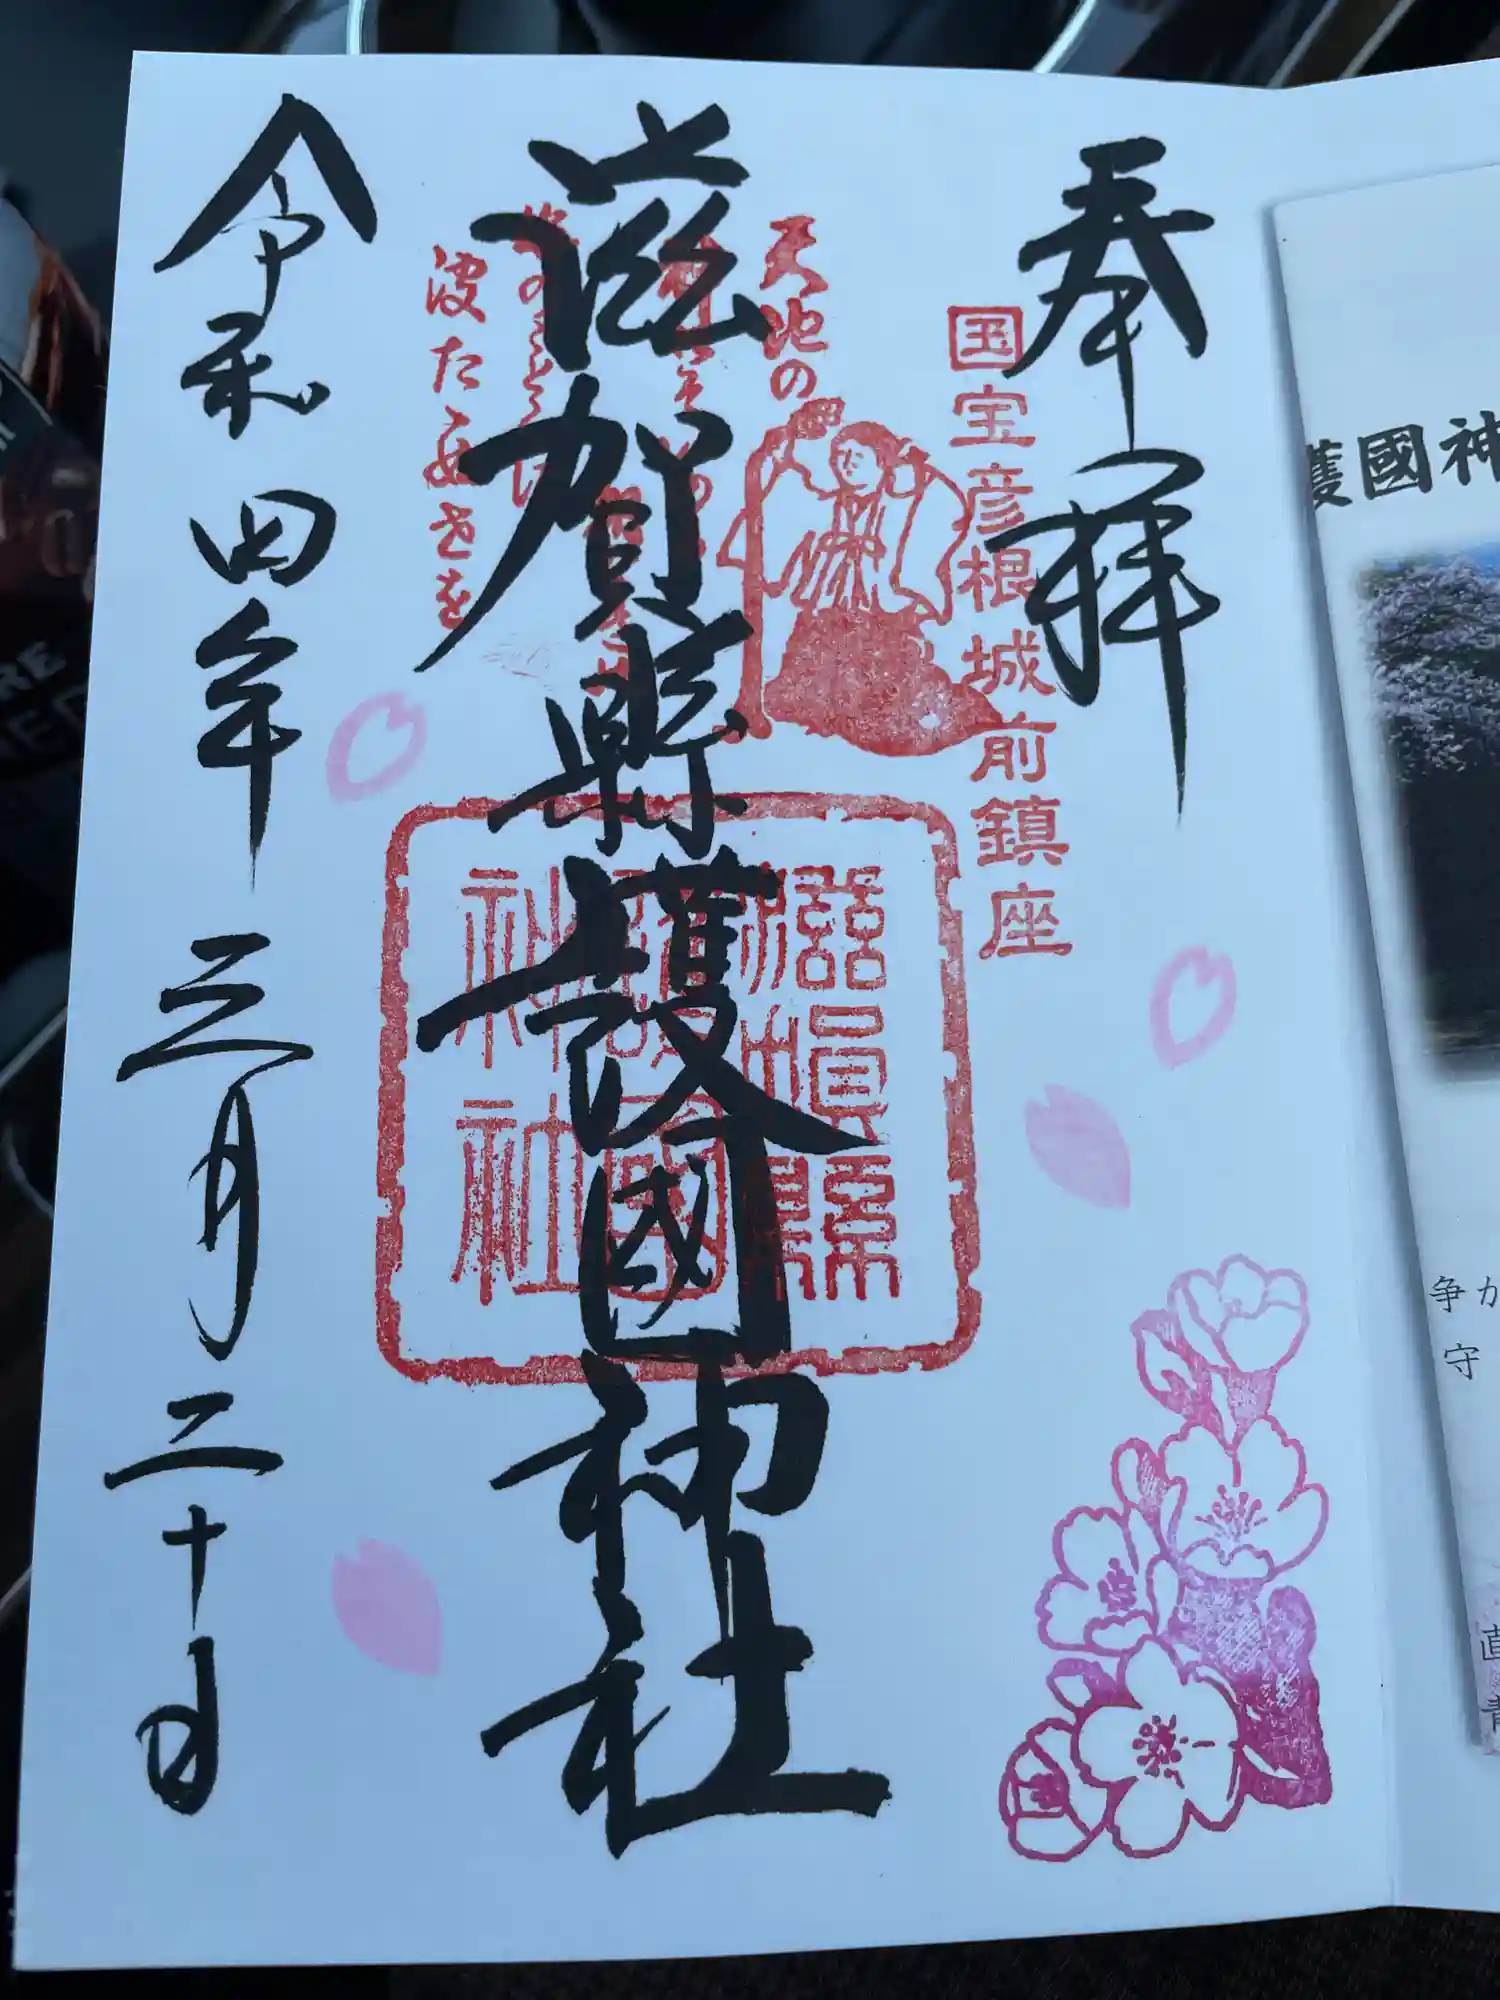 奉拝
国宝彦根城前鎮座
滋賀縣護國神社
天地の
波たゝぬ世を
滋賀縣
護國
神社
令和四年三月二十日
護國神
争か
守
直
青